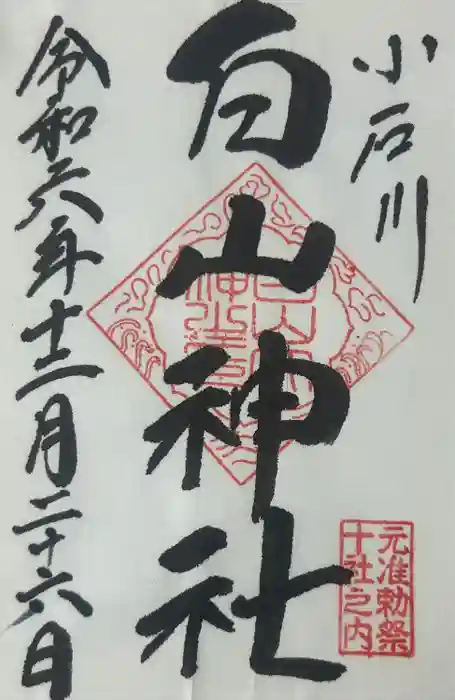 小石川
白山神社
令和六年十二月二十六日
元准勅祭
十社之内